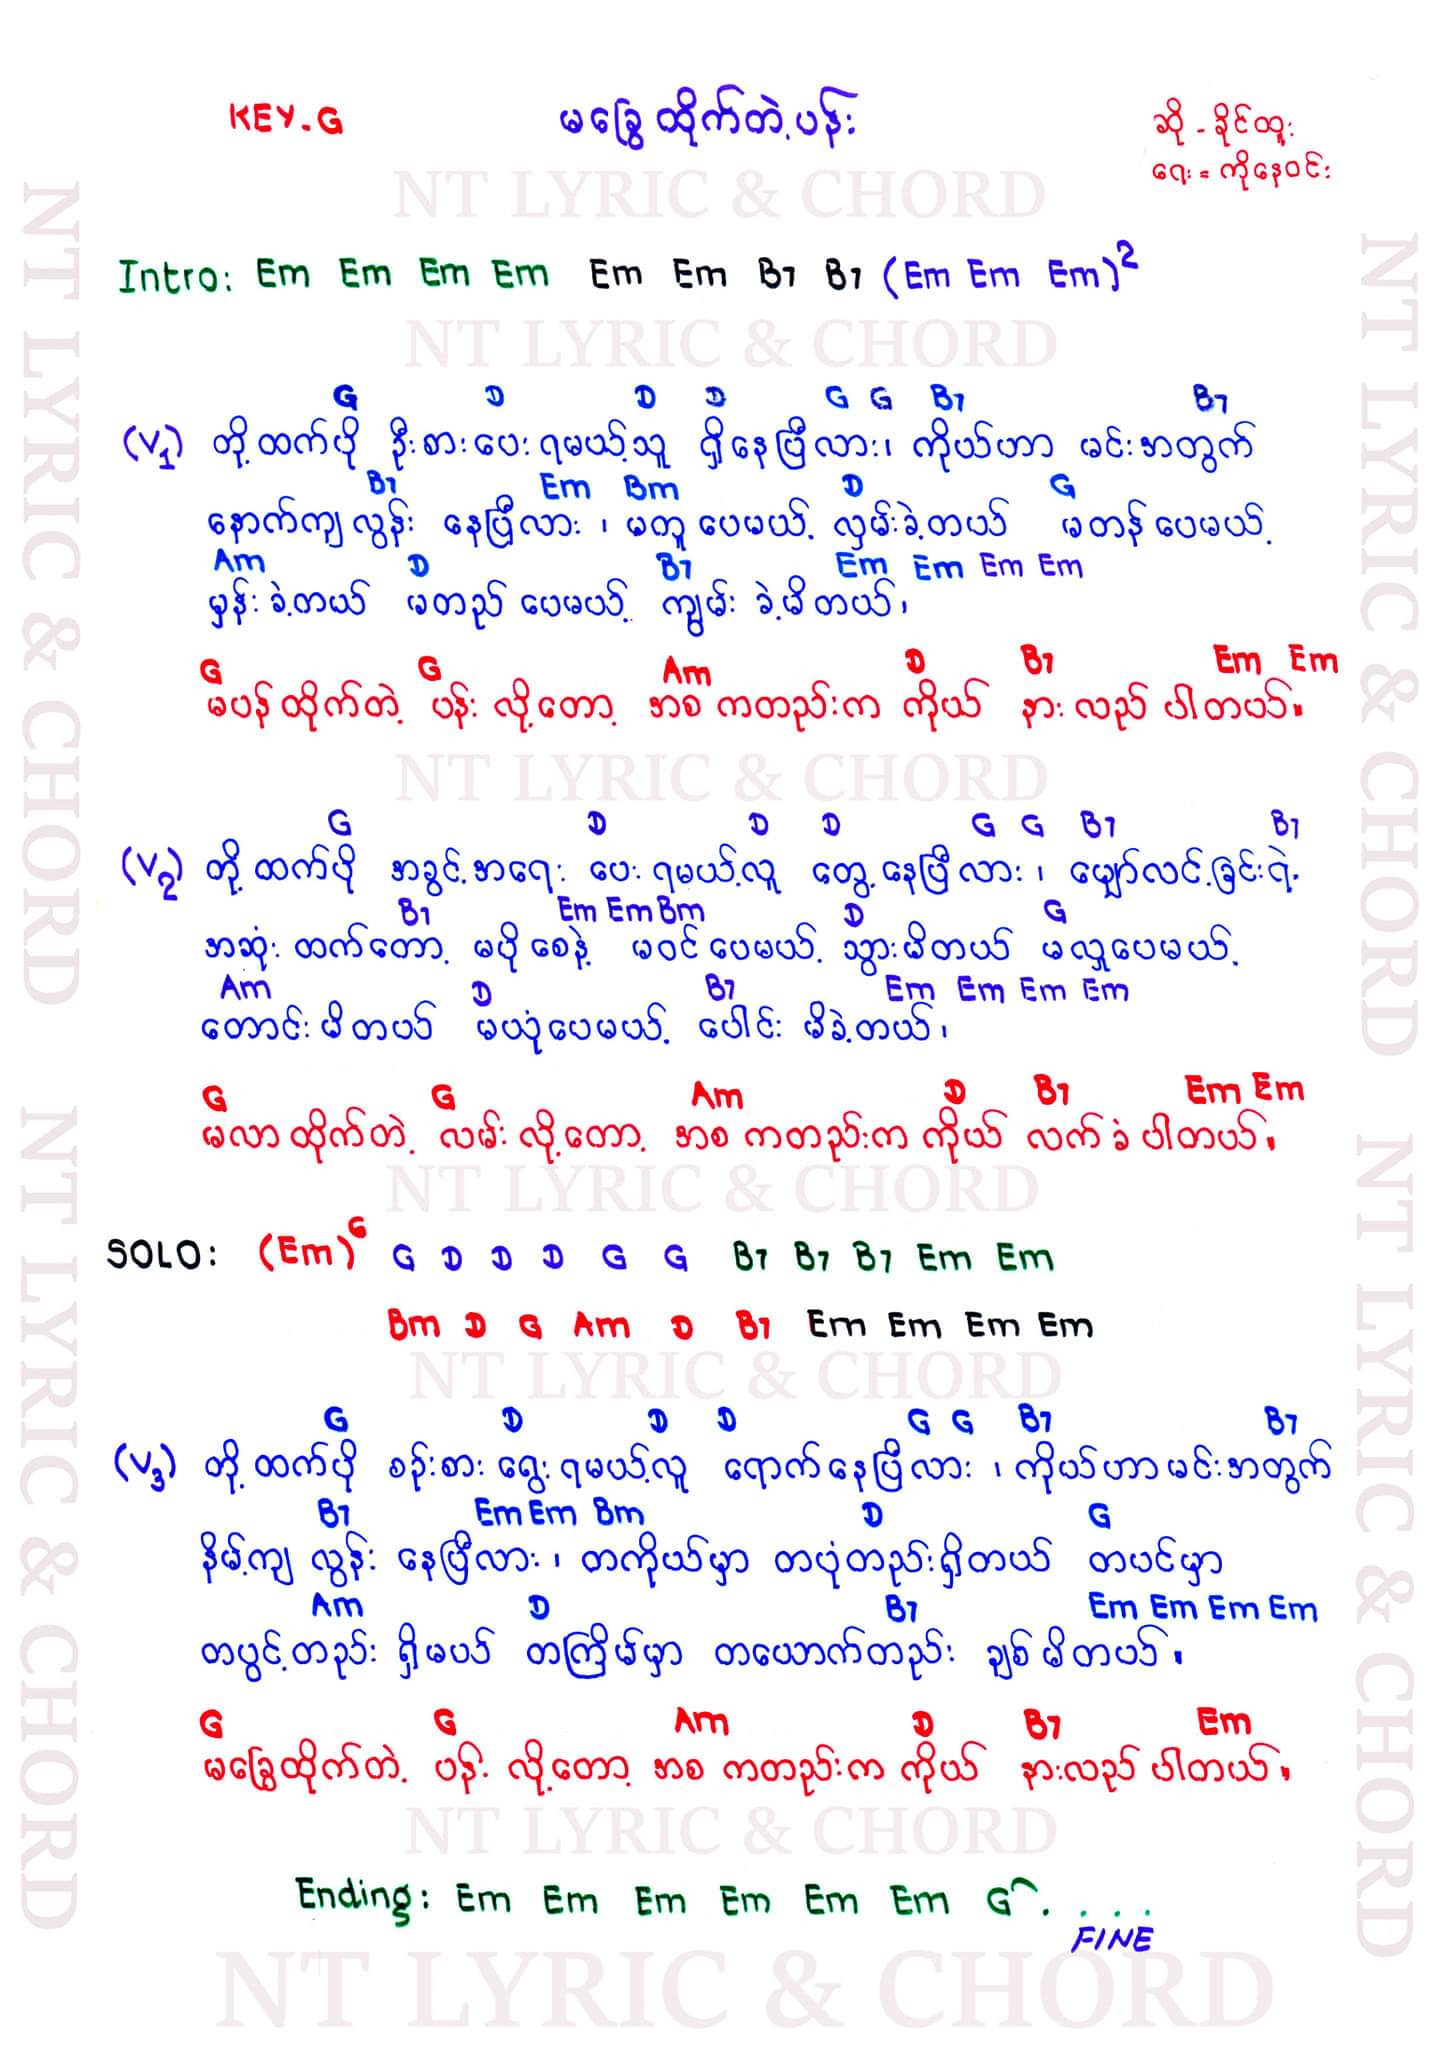 KEY.G
မခြွေထိုက်တဲ့ပန်း
ဆို - ခိုင်ထူး
ရေး = ကိုနေဝင်း
NT LYRIC & CHORD
Intro: Em Em Em Em Em Em B7 B7 (Em Em Em)²
NT LYRIC & CHORD
G D D D G G B7 B7
(V1) တို့ထက်ပို ဦးစားပေးရမယ့်သူ ရှိနေပြီလား၊ ကိုယ်ဟာ မင်းအတွက်
B7 Em Bm D G
နောက်ကျလွန်း နေပြီလား ၊ မတူပေမယ့် လှမ်းခဲ့တယ် မတန်ပေမယ့်
Am D B7 Em Em Em Em
မှန်းခဲ့တယ် မတည်ပေမယ့် ကျွမ်းခဲ့မိတယ်၊
G G Am D B7 Em Em
မပန်ထိုက်တဲ့ ပန်းလို့တော့ အစကတည်းက ကိုယ် နားလည်ပါတယ်။
NT LYRIC & CHORD
G D D D G G B7 B7
(V2) တို့ထက်ပို အခွင့်အရေး ပေးရမယ့်လူ တွေ့နေပြီလား၊ မျှော်လင့်ခြင်းရဲ့
B7 Em Em Bm D G
အဆုံးထက်တော့ မပိုစေနဲ့ မဝင်ပေမယ့် သွားမိတယ် မလှူပေမယ့်
Am D B7 Em Em Em Em
တောင်းမိတယ် မယုံပေမယ့် ပေါင်းမိခဲ့တယ်၊
G G Am D B7 Em Em
မလာထိုက်တဲ့ လမ်းလို့တော့ အစကတည်းက ကိုယ် လက်ခံပါတယ်။
NT LYRIC & CHORD
SOLO: (Em)⁶ G D D D G G B7 B7 B7 Em Em
Bm D G Am D B7 Em Em Em Em
NT LYRIC & CHORD
G D D D G G B7 B7
(V3) တို့ထက်ပို စဉ်းစားရွေးရမယ့်လူ ရောက်နေပြီလား ၊ ကိုယ်ဟာမင်းအတွက်
B7 Em Em Bm D G
နိမ့်ကျလွန်း နေပြီလား၊ တကိုယ်မှာ တပုံတည်းရှိတယ် တပင်မှာ
Am D B7 Em Em Em Em
တပွင့်တည်းရှိမယ် တကြိမ်မှာ တယောက်တည်း ချစ်မိတယ်။
G G Am D B7 Em
မခြွေထိုက်တဲ့ ပန်းလို့တော့ အစကတည်းက ကိုယ် နားလည်ပါတယ်။
NT LYRIC & CHORD
Ending: Em Em Em Em Em Em G . . . .
FINE
NT LYRIC & CHORD
NT LYRIC & CHORD
NT LYRIC & CHORD
NT LYRIC & CHORD
NT LYRIC & CHORD